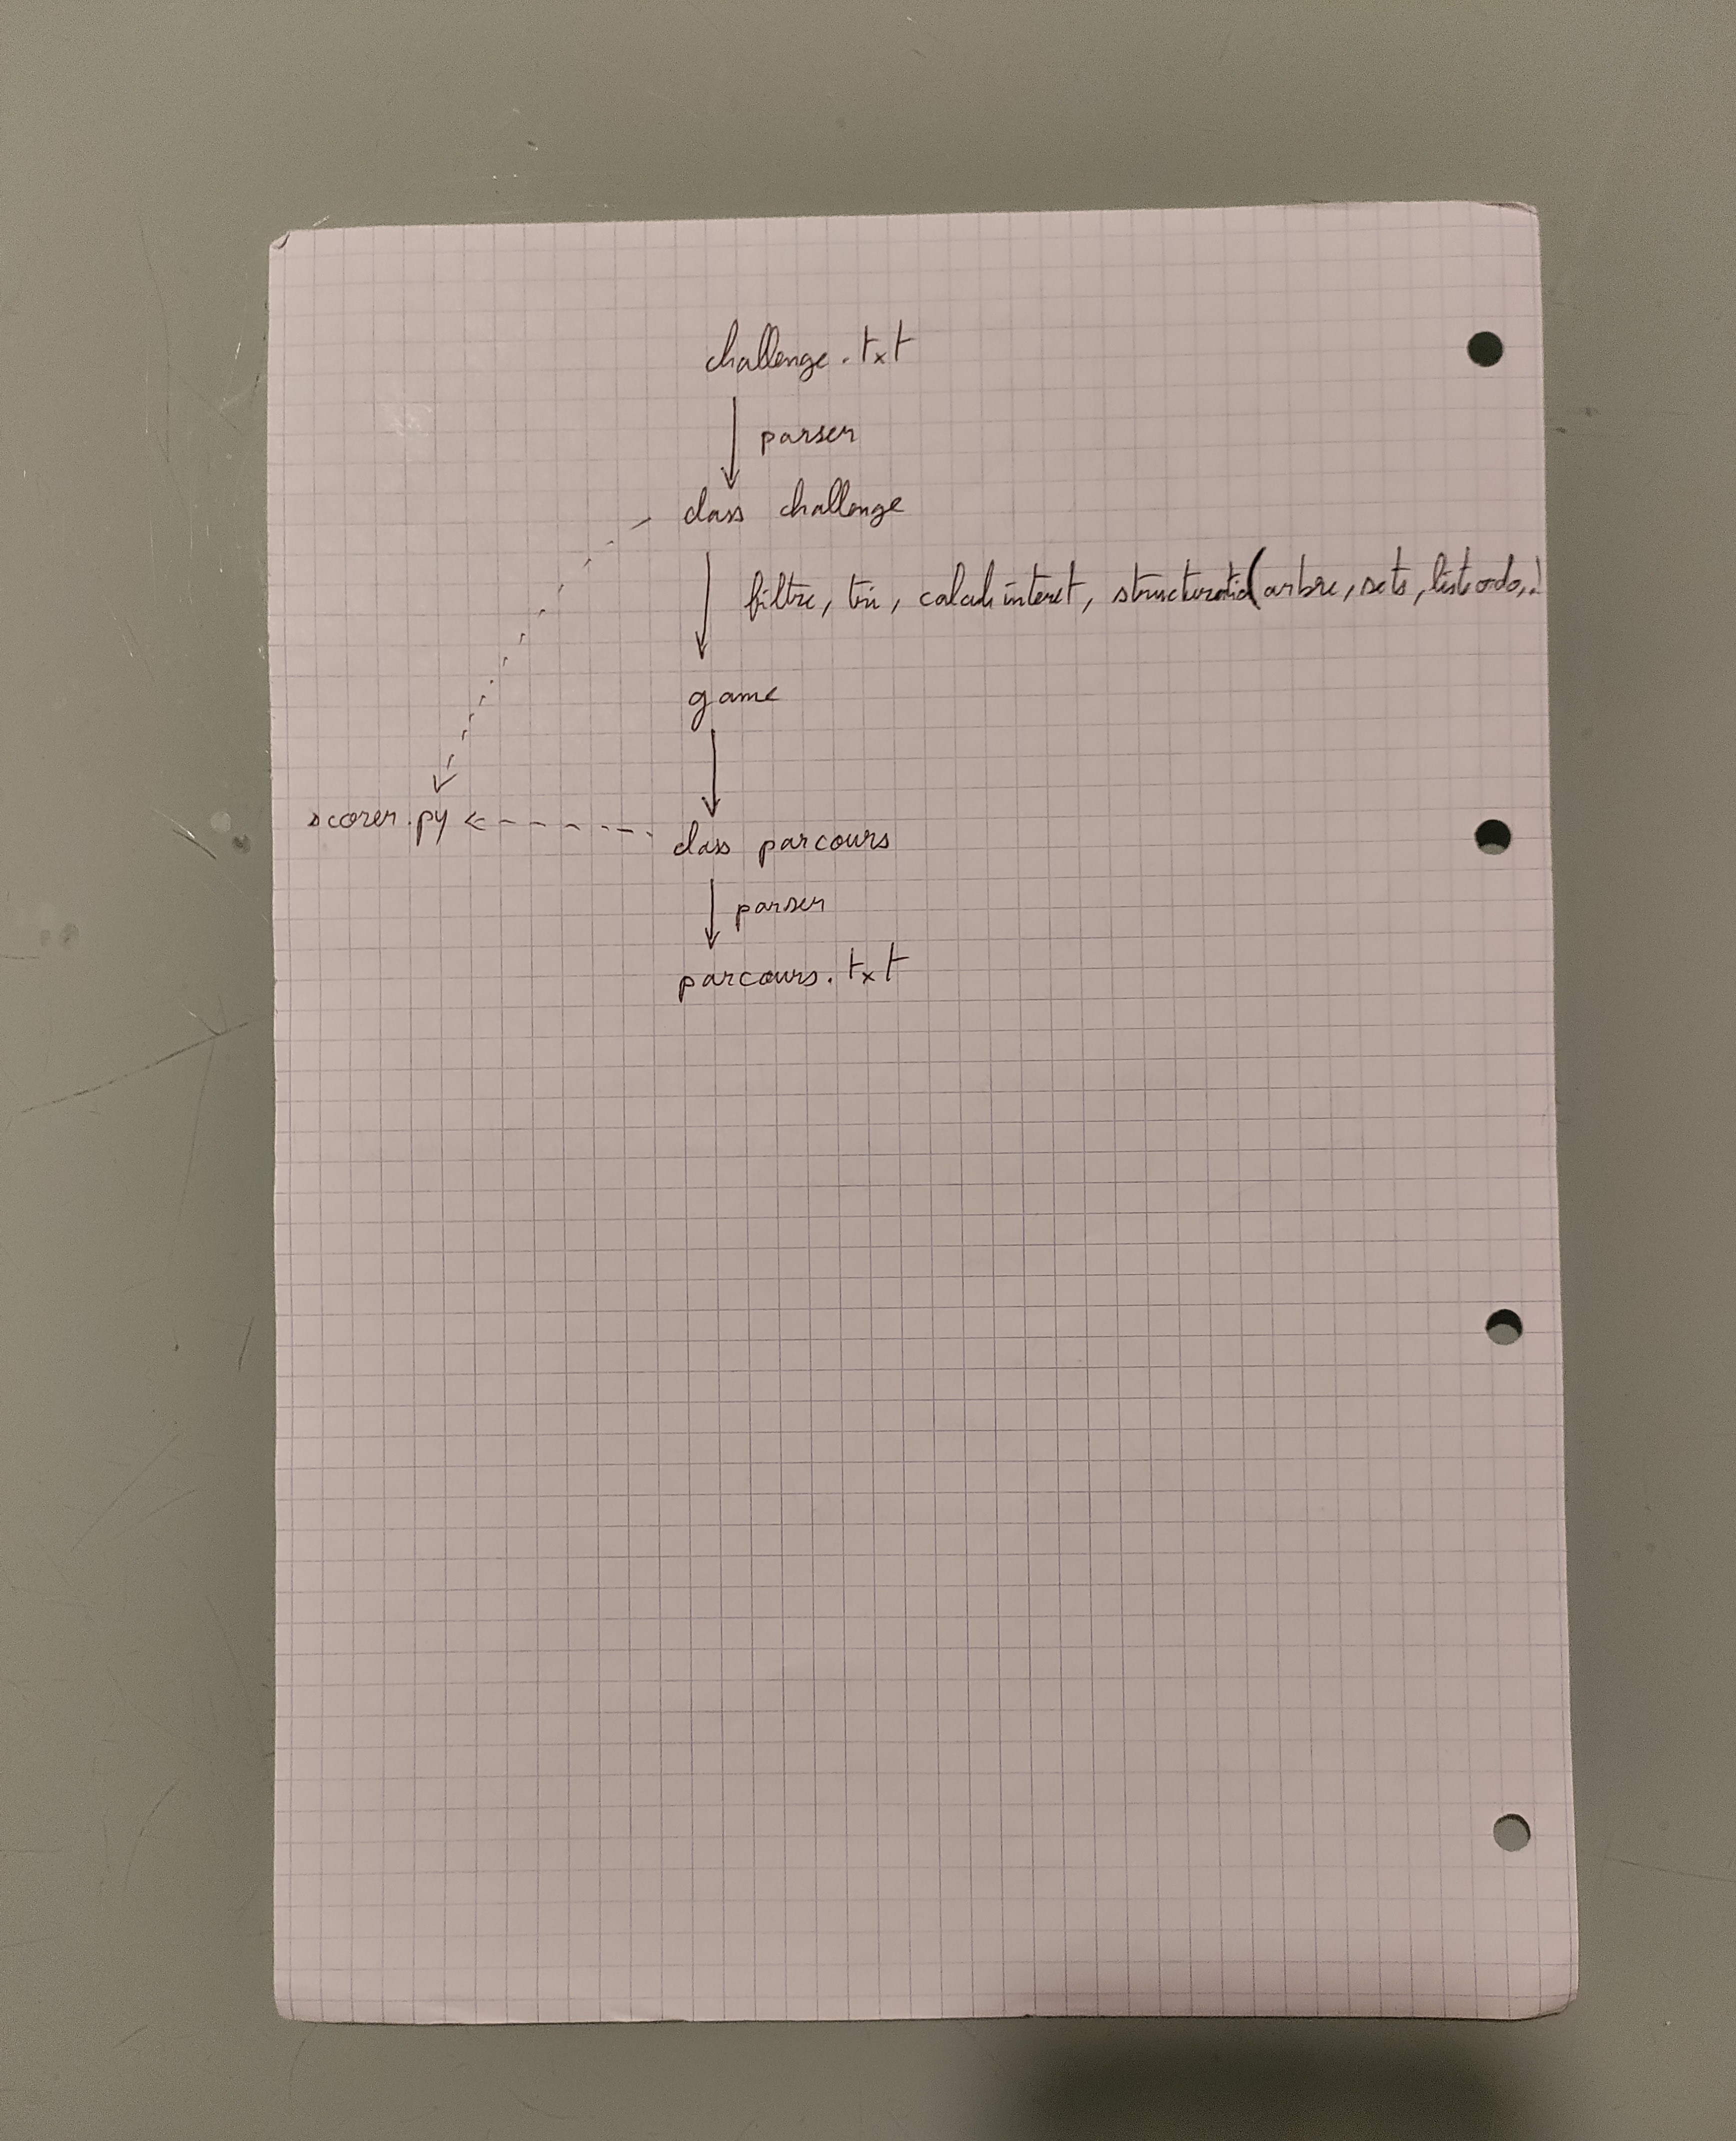 challenge.txt
parser
class challenge
filtre, tri, calculs interet, structuratio(arbre, sets, list ordo,.)
game
scorer.py
class parcours
parser
parcours.txt